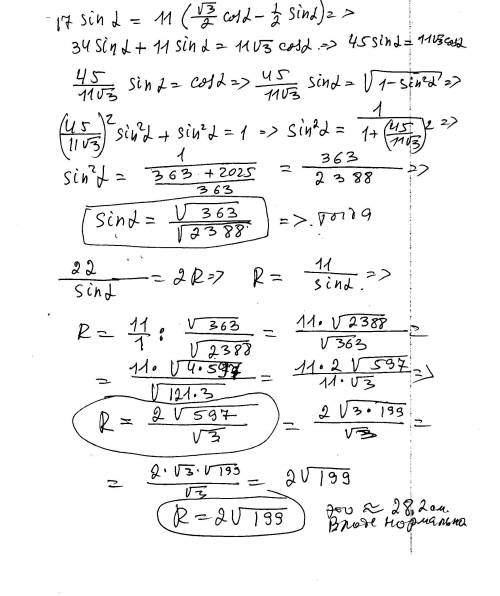 17 sin α = 11 (√3/2 cos α - 1/2 sin α) =>
34 sin α + 11 sin α = 11√3 cos α => 45 sin α = 11√3 cos α
45/11√3 sin α = cos α => 45/11√3 sin α = √1 - sin²α =>
(45/11√3)² sin²α + sin²α = 1 => sin²α = 1/1+(45/11√3)² =>
sin²α = 1/(363 + 2025/363) = 363/2388 =>
sin α = √363/√2388 => тогда
22/sin α = 2R => R = 11/sin α =>
R = 11/1 : √363/√2388 = 11·√2388/√363 =
= 11·√4·597/√121·3 = 11·2√597/11·√3 =>
R = 2√597/√3 = 2√3·199/√3 =
= 2·√3·√199/√3 = 2√199
R = 2√199
это ≈ 28,2 см.
Вроде нормально